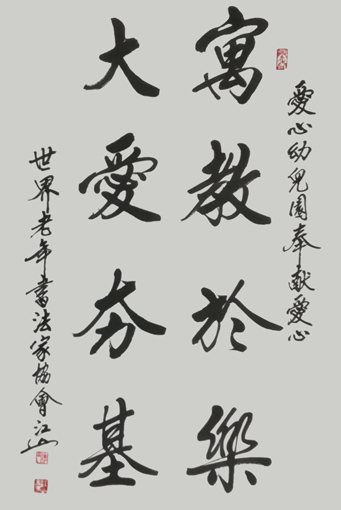 愛心幼兒園奉献愛心
寓教於樂
大愛夯基
世界老年書法家協會江山